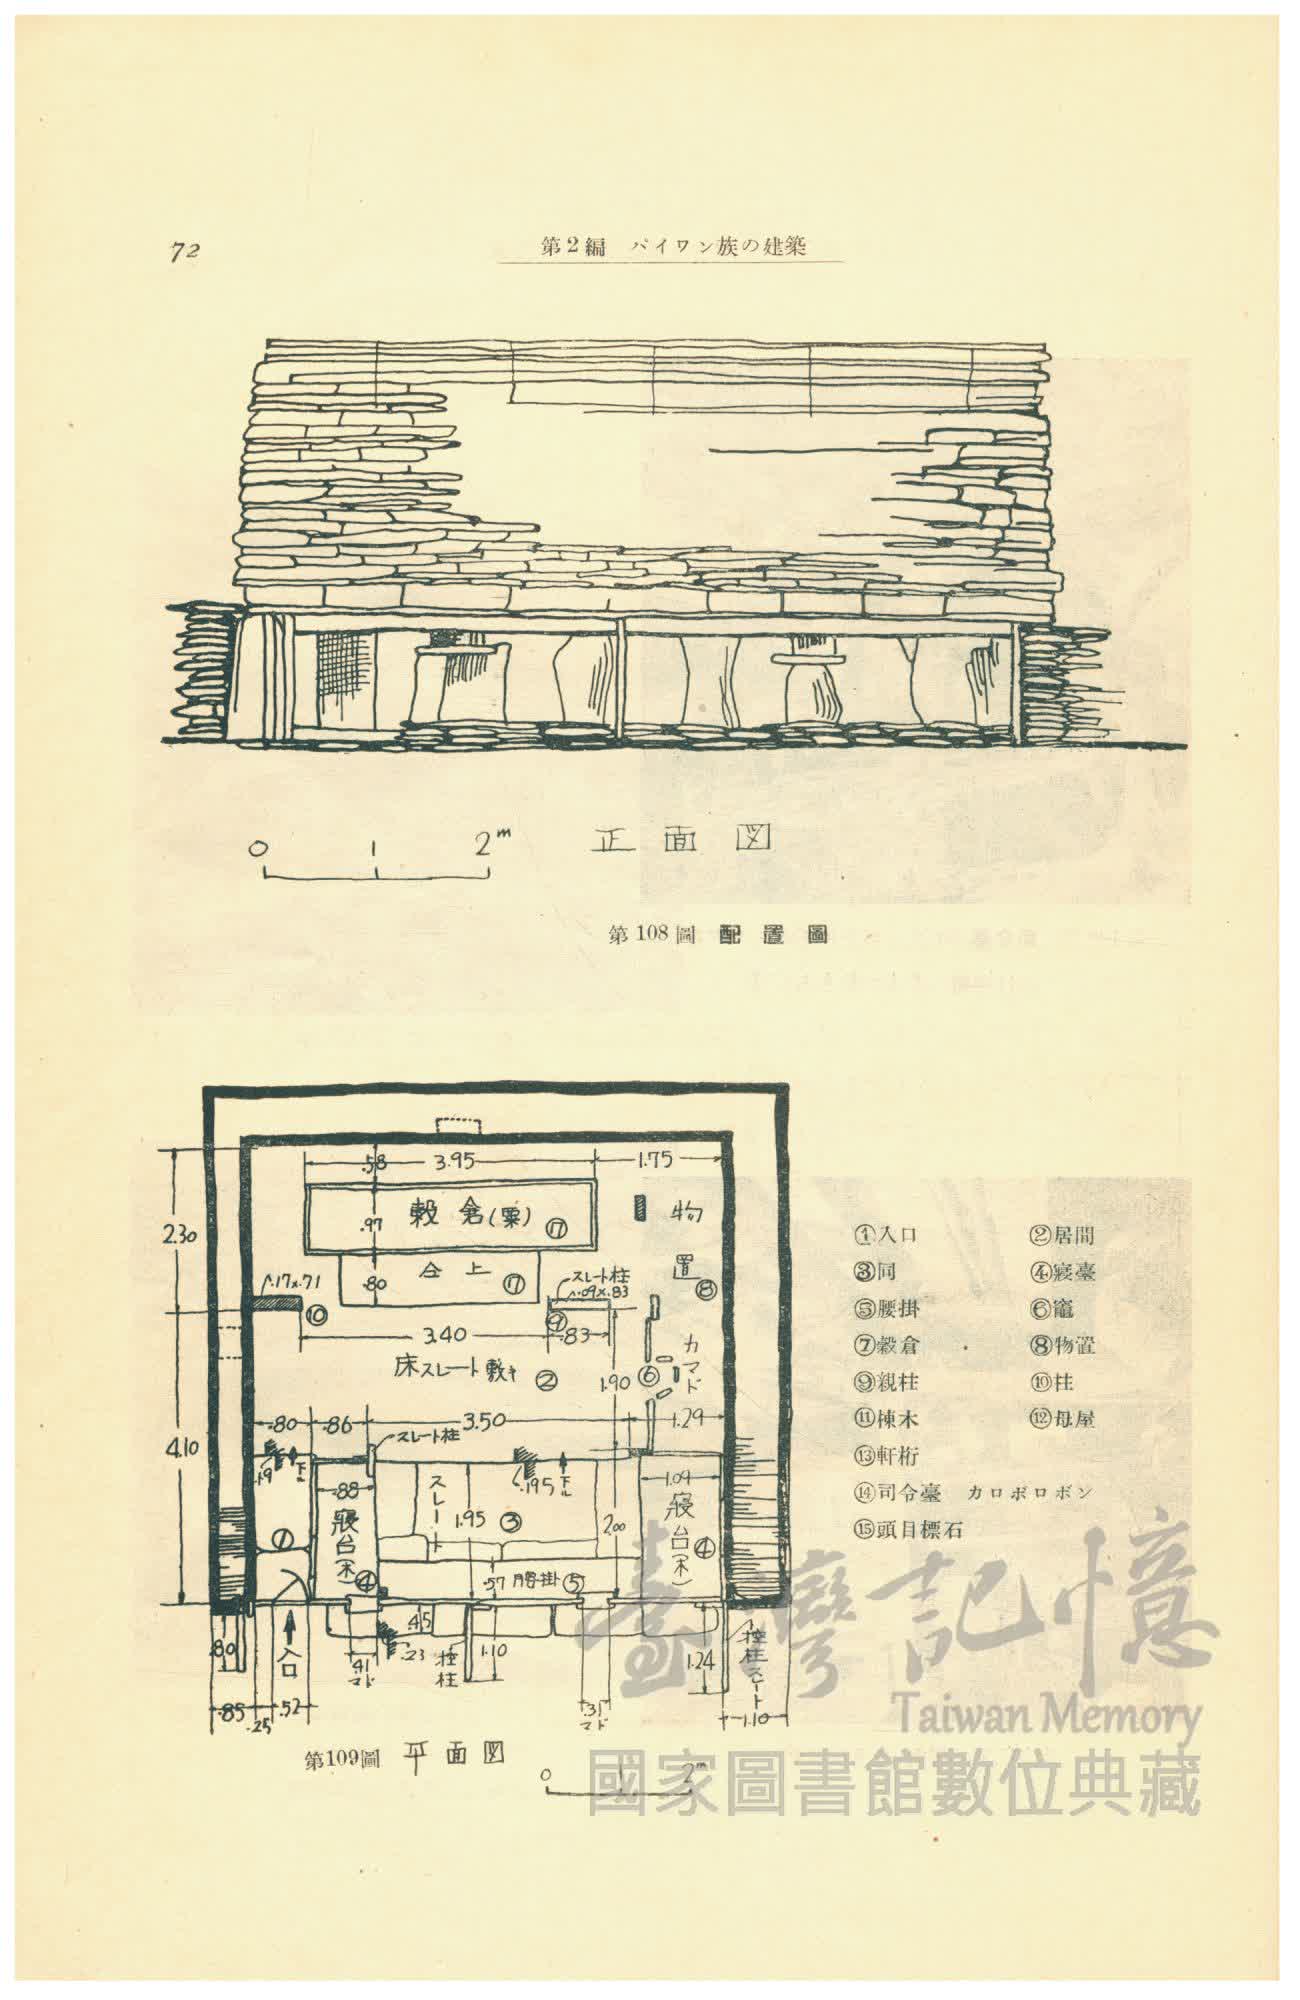 72
第2編 パイワン族の建築
0 1 2m
正面図
第108圖 配置圖
.58 3.95 1.75
2.30
.97
穀倉(粟) ⑰
物
置 ⑧
台上 ⑰
.80
.17×.71
⑩
スレート柱
.09×.83
⑨
3.40 .83
床スレート敷キ ②
1.90
⑥
カマド
4.10
.80 .86 3.50 1.29
スレート柱
.19
下ル
.88
寝台(木) ④
スレート
1.95
③
.195
下ル
2.00
1.09
寝台(木) ④
①
.57 腰掛 ⑤
.80
入口
.41
マド
.45
.23
控柱
1.10
.31
マド
1.24
控柱スレート
.85 .25 .52
1.10
第109圖 平面図
0 1 2m
①入口 ②居間
③同 ④寢臺
⑤腰掛 ⑥竈
⑦穀倉 ⑧物置
⑨親柱 ⑩柱
⑪棟木 ⑫母屋
⑬軒桁
⑭司令臺 カロボロボン
⑮頭目標石
臺灣記憶
Taiwan Memory
國家圖書館數位典藏